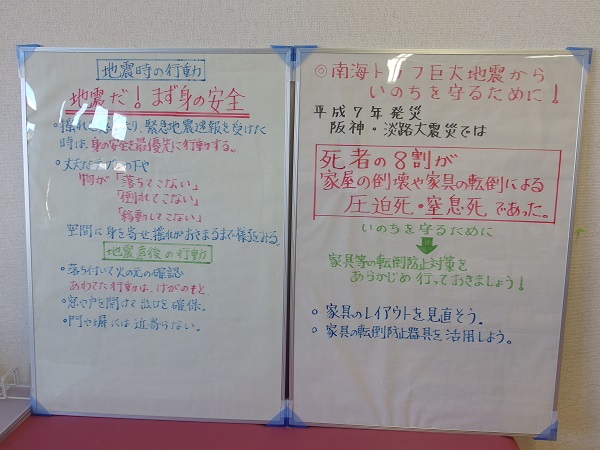 地震時の行動
地震だ!まず身の安全
・揺れを感じたり、緊急地震速報を受けた
時は、身の安全を最優先に行動する。
・丈夫なテーブルの下や
物が「落ちてこない」
「倒れてこない」
「移動してこない」
空間に身を寄せ揺れがおさまるまで様子をみる。
地震直後の行動
・落ち付いて火の元の確認
あわてた行動は、けがのもと
・窓や戸を開けて出口を確保。
・門や塀には近寄らない。
◎南海トラフ巨大地震から
いのちを守るために!
平成7年発災
阪神・淡路大震災では
死者の8割が
家屋の倒壊や家具の転倒による
圧迫死・窒息死であった。
いのちを守るために
家具等の転倒防止対策を
あらかじめ行っておきましょう!
○家具のレイアウトを見直そう。
○家具の転倒防止器具を活用しよう。